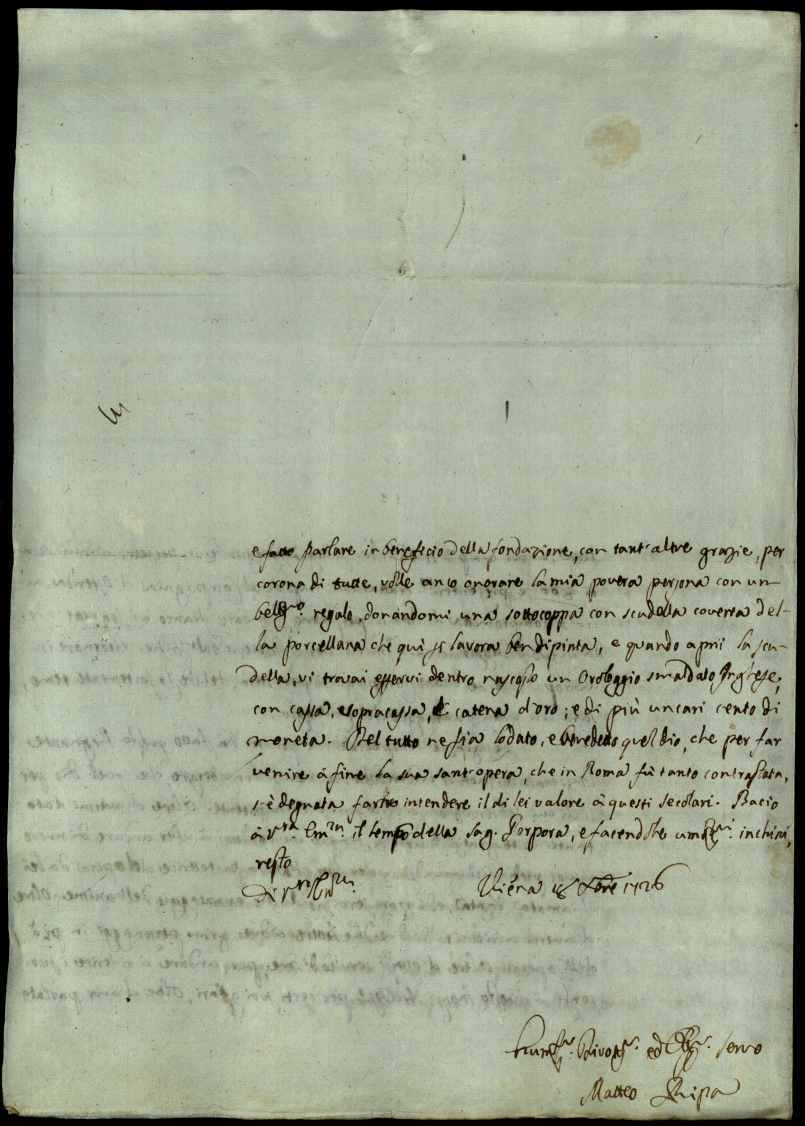 e fatto parlare in beneficio della fondazione, con tant'altre grazie, per
corona di tutte, volle anco onorare la mia povera persona con un
bell.mo regalo, donandomi una sottocoppa con scudella coverta del-
la porcellana che quì si lavora ben dipinta, e quando aprii la scu-
della, vi trovai esservi dentro nascosto un Orologgio smaldato Inglese,
con cassa, e sopracassa, e catena d'oro; e di più un cento di
moneta. Del tutto ne sia lodato, e benedetto quel Dio, che per far
venire à fine la sua sant'opera, che in Roma fù tanto contrastata,
s'è degnata intendere il di lei valore à questi secolari. Bacio
à V.ra Em.za il lembo della sag. Porpora, e facendole um.mi inchini,
resto
Di V.ra Em.za Viena 18 1726
Hum.mo Divot.mo ed Obb.mo servo
Matteo Ripa